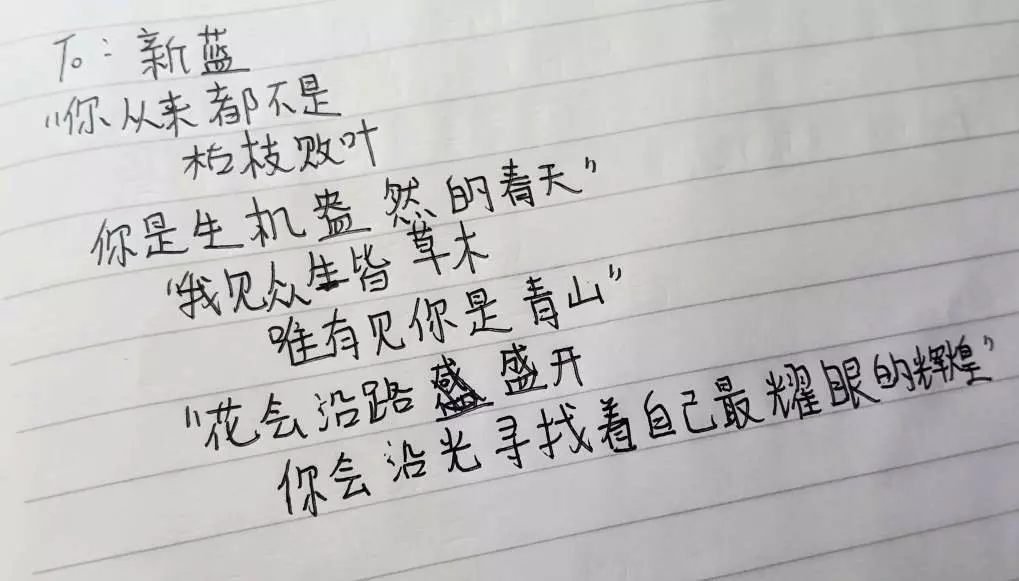 To: 新蓝
“你从来都不是
枯枝败叶
你是生机盎然的春天”
“我见众生皆草木
唯有见你是青山”
“花会沿路盛开
你会沿光寻找着自己最耀眼的辉煌”